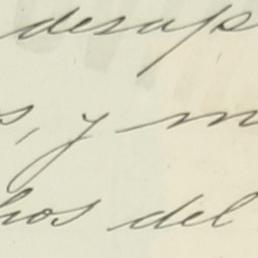 desap
s, y m
hos del